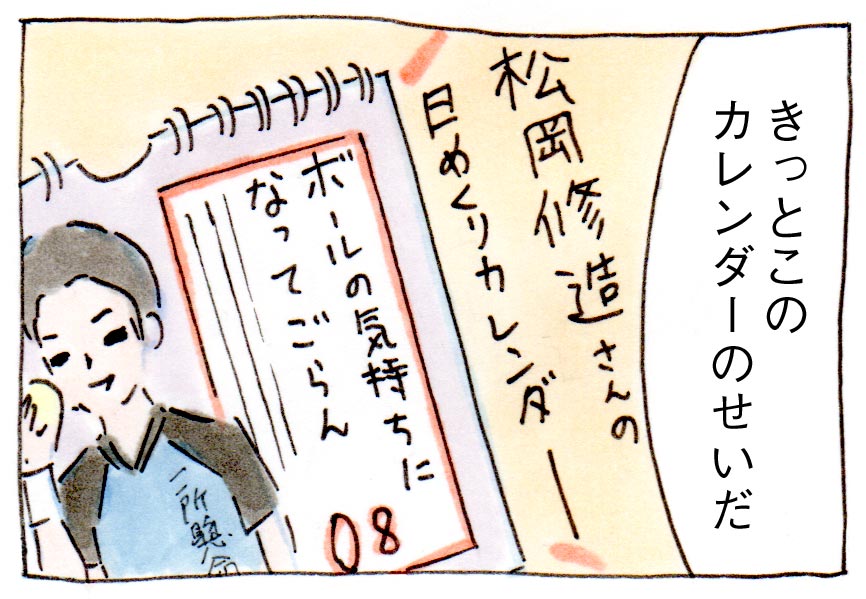 きっとこの
カレンダーのせいだ
松岡修造さんの
日めくりカレンダー
ボールの気持ちに
なってごらん
08
一所懸命